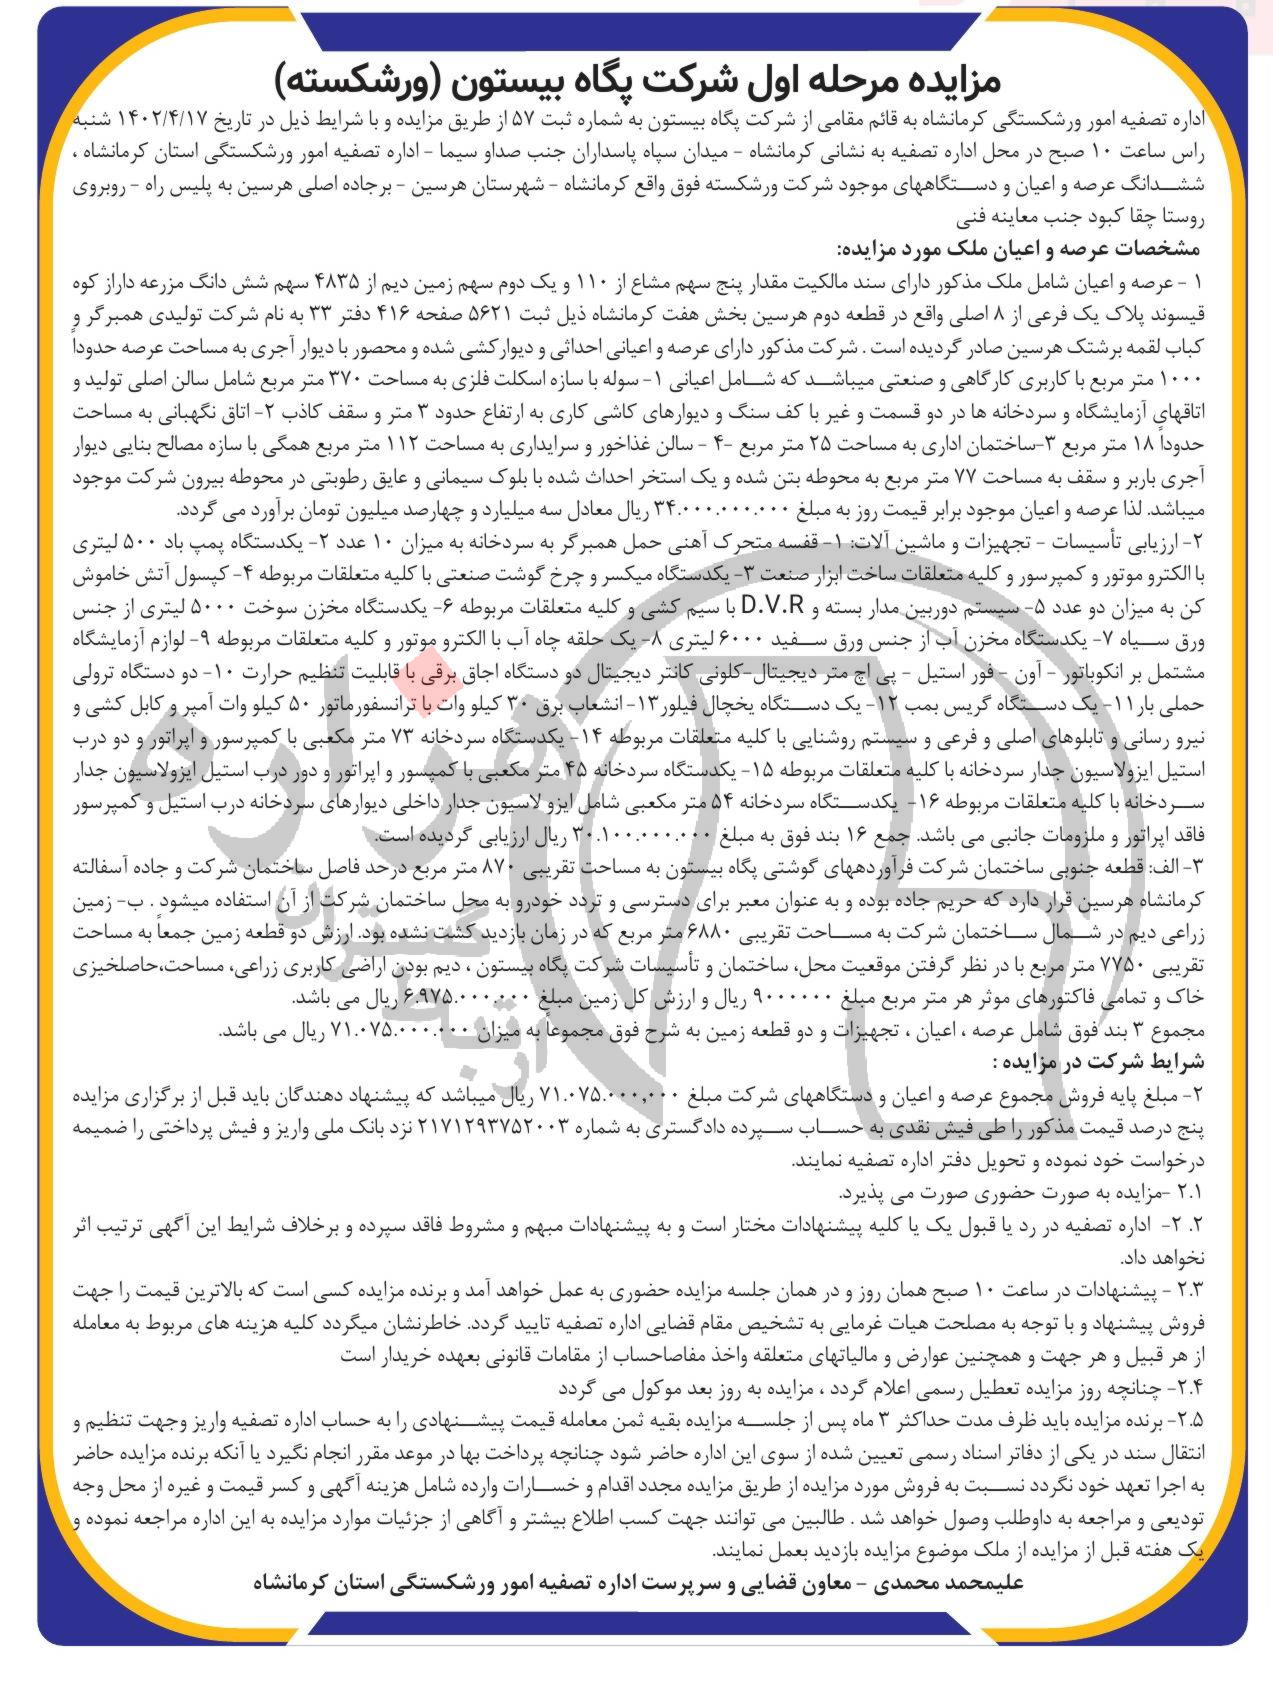 مزایده مرحله اول شرکت پگاه بیستون (ورشکسته)
اداره تصفیه امور ورشکستگی کرمانشاه به قائم مقامی از شرکت پگاه بیستون به شماره ثبت ۵۷ از طریق مزایده و با شرایط ذیل در تاریخ ۱۴۰۲/۴/۱۷ شنبه
راس ساعت ۱۰ صبح در محل اداره تصفیه به نشانی کرمانشاه - میدان سپاه پاسداران جنب صداو سیما - اداره تصفیه امور ورشکستگی استان کرمانشاه ،
ششدانگ عرصه و اعیان و دستگاههای موجود شرکت ورشکسته فوق واقع کرمانشاه - شهرستان هرسین - برجاده اصلی هرسین به پلیس راه - روبروی
روستا چقا کبود جنب معاینه فنی
مشخصات عرصه و اعیان ملک مورد مزایده:
۱ - عرصه و اعیان شامل ملک مذکور دارای سند مالکیت مقدار پنج سهم مشاع از ۱۱۰ و یک دوم سهم زمین دیم از ۴۸۳۵ سهم شش دانگ مزرعه داراز کوه
قیسوند پلاک یک فرعی از ۸ اصلی واقع در قطعه دوم هرسین بخش هفت کرمانشاه ذیل ثبت ۵۶۲۱ صفحه ۴۱۶ دفتر ۳۳ به نام شرکت تولیدی همبرگر و
کباب لقمه برشتک هرسین صادر گردیده است . شرکت مذکور دارای عرصه و اعیانی احداثی و دیوارکشی شده و محصور با دیوار آجری به مساحت عرصه حدوداً
۱۰۰۰ متر مربع با کاربری کارگاهی و صنعتی میباشد که شامل اعیانی ۱- سوله با سازه اسکلت فلزی به مساحت ۳۷۰ متر مربع شامل سالن اصلی تولید و
اتاقهای آزمایشگاه و سردخانه ها در دو قسمت و غیر با کف سنگ و دیوارهای کاشی کاری به ارتفاع حدود ۳ متر و سقف کاذب ۲- اتاق نگهبانی به مساحت
حدوداً ۱۸ متر مربع ۳-ساختمان اداری به مساحت ۲۵ متر مربع -۴ - سالن غذاخور و سرایداری به مساحت ۱۱۲ متر مربع همگی با سازه مصالح بنایی دیوار
آجری باربر و سقف به مساحت ۷۷ متر مربع به محوطه بتن شده و یک استخر احداث شده با بلوک سیمانی و عایق رطوبتی در محوطه بیرون شرکت موجود
میباشد. لذا عرصه و اعیان موجود برابر قیمت روز به مبلغ ۳۴.۰۰۰.۰۰۰.۰۰۰ ریال معادل سه میلیارد و چهارصد میلیون تومان برآورد می گردد.
۲- ارزیابی تأسیسات - تجهیزات و ماشین آلات: ۱- قفسه متحرک آهنی حمل همبرگر به سردخانه به میزان ۱۰ عدد ۲- یکدستگاه پمپ باد ۵۰۰ لیتری
با الکترو موتور و کمپرسور و کلیه متعلقات ساخت ابزار صنعت ۳- یکدستگاه میکسر و چرخ گوشت صنعتی با کلیه متعلقات مربوطه ۴- کپسول آتش خاموش
کن به میزان دو عدد ۵- سیستم دوربین مدار بسته و D.V.R با سیم کشی و کلیه متعلقات مربوطه ۶- یکدستگاه مخزن سوخت ۵۰۰۰ لیتری از جنس
ورق سیاه ۷- یکدستگاه مخزن آب از جنس ورق سفید ۶۰۰۰ لیتری ۸- یک حلقه چاه آب با الکترو موتور و کلیه متعلقات مربوطه ۹- لوازم آزمایشگاه
مشتمل بر انکوباتور - آون - فور استیل - پی اچ متر دیجیتال-کلونی کانتر دیجیتال دو دستگاه اجاق برقی با قابلیت تنظیم حرارت ۱۰- دو دستگاه ترولی
حملی بار۱۱- یک دستگاه گریس بمب ۱۲- یک دستگاه یخچال فیلور۱۳- انشعاب برق ۳۰ کیلو وات با ترانسفورماتور ۵۰ کیلو وات آمپر و کابل کشی و
نیرو رسانی و تابلوهای اصلی و فرعی و سیستم روشنایی با کلیه متعلقات مربوطه ۱۴- یکدستگاه سردخانه ۷۳ متر مکعبی با کمپرسور و اپراتور و دو درب
استیل ایزولاسیون جدار سردخانه با کلیه متعلقات مربوطه ۱۵- یکدستگاه سردخانه ۴۵ متر مکعبی با کمپسور و اپراتور و دور درب استیل ایزولاسیون جدار
سردخانه با کلیه متعلقات مربوطه ۱۶- یکدستگاه سردخانه ۵۴ متر مکعبی شامل ایزو لاسیون جدار داخلی دیوارهای سردخانه درب استیل و کمپرسور
فاقد اپراتور و ملزومات جانبی می باشد. جمع ۱۶ بند فوق به مبلغ ۳۰.۱۰۰.۰۰۰.۰۰۰ ریال ارزیابی گردیده است.
۳- الف: قطعه جنوبی ساختمان شرکت فرآوردههای گوشتی پگاه بیستون به مساحت تقریبی ۸۷۰ متر مربع درحد فاصل ساختمان شرکت و جاده آسفالته
کرمانشاه هرسین قرار دارد که حریم جاده بوده و به عنوان معبر برای دسترسی و تردد خودرو به محل ساختمان شرکت از آن استفاده میشود . ب- زمین
زراعی دیم در شمال ساختمان شرکت به مساحت تقریبی ۶۸۸۰ متر مربع که در زمان بازدید کشت نشده بود. ارزش دو قطعه زمین جمعاً به مساحت
تقریبی ۷۷۵۰ متر مربع با در نظر گرفتن موقعیت محل، ساختمان و تأسیسات شرکت پگاه بیستون ، دیم بودن اراضی کاربری زراعی، مساحت،حاصلخیزی
خاک و تمامی فاکتورهای موثر هر متر مربع مبلغ ۹۰۰۰۰۰۰ ریال و ارزش کل زمین مبلغ ۶.۹۷۵.۰۰۰.۰۰۰ ریال می باشد.
مجموع ۳ بند فوق شامل عرصه ، اعیان ، تجهیزات و دو قطعه زمین به شرح فوق مجموعاً به میزان ۷۱.۰۷۵.۰۰۰.۰۰۰ ریال می باشد.
شرایط شرکت در مزایده :
۲- مبلغ پایه فروش مجموع عرصه و اعیان و دستگاههای شرکت مبلغ ۷۱.۰۷۵.۰۰۰,۰۰۰ ریال میباشد که پیشنهاد دهندگان باید قبل از برگزاری مزایده
پنج درصد قیمت مذکور را طی فیش نقدی به حساب سپرده دادگستری به شماره ۲۱۷۱۲۹۳۷۵۲۰۰۳ نزد بانک ملی واریز و فیش پرداختی را ضمیمه
درخواست خود نموده و تحویل دفتر اداره تصفیه نمایند.
۲.۱ -مزایده به صورت حضوری صورت می پذیرد.
۲. ۲- اداره تصفیه در رد یا قبول یک یا کلیه پیشنهادات مختار است و به پیشنهادات مبهم و مشروط فاقد سپرده و برخلاف شرایط این آگهی ترتیب اثر
نخواهد داد.
۲.۳ - پیشنهادات در ساعت ۱۰ صبح همان روز و در همان جلسه مزایده حضوری به عمل خواهد آمد و برنده مزایده کسی است که بالاترین قیمت را جهت
فروش پیشنهاد و با توجه به مصلحت هیات غرمایی به تشخیص مقام قضایی اداره تصفیه تایید گردد. خاطرنشان میگردد کلیه هزینه های مربوط به معامله
از هر قبیل و هر جهت و همچنین عوارض و مالیاتهای متعلقه واخذ مفاصاحساب از مقامات قانونی بعهده خریدار است
۲.۴- چنانچه روز مزایده تعطیل رسمی اعلام گردد ، مزایده به روز بعد موکول می گردد
۲.۵- برنده مزایده باید ظرف مدت حداکثر ۳ ماه پس از جلسه مزایده بقیه ثمن معامله قیمت پیشنهادی را به حساب اداره تصفیه واریز وجهت تنظیم و
انتقال سند در یکی از دفاتر اسناد رسمی تعیین شده از سوی این اداره حاضر شود چنانچه پرداخت بها در موعد مقرر انجام نگیرد یا آنکه برنده مزایده حاضر
به اجرا تعهد خود نگردد نسبت به فروش مورد مزایده از طریق مزایده مجدد اقدام و خسارات وارده شامل هزینه آگهی و کسر قیمت و غیره از محل وجه
تودیعی و مراجعه به داوطلب وصول خواهد شد . طالبین می توانند جهت کسب اطلاع بیشتر و آگاهی از جزئیات موارد مزایده به این اداره مراجعه نموده و
یک هفته قبل از مزایده از ملک موضوع مزایده بازدید بعمل نمایند.
علیمحمد محمدی - معاون قضایی و سرپرست اداره تصفیه امور ورشکستگی استان کرمانشاه